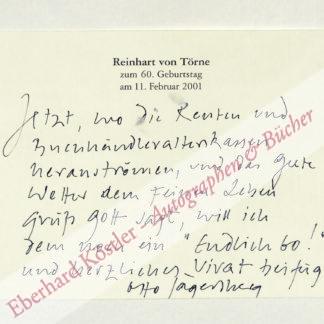 Reinhart von Törne
zum 60. Geburtstag
am 11. Februar 2001
Jetzt, wo die Renten und
Buchhändleralterskassen
heranströmen, und das gute
Wetter dem Feinen Leben
Grüß Gott sagt, will ich
dem noch ein "Endlich 60!"
und herzliches Vivat beifüg
Otto Jägersberg
Eberhard Köstler - Autographen & Bücher